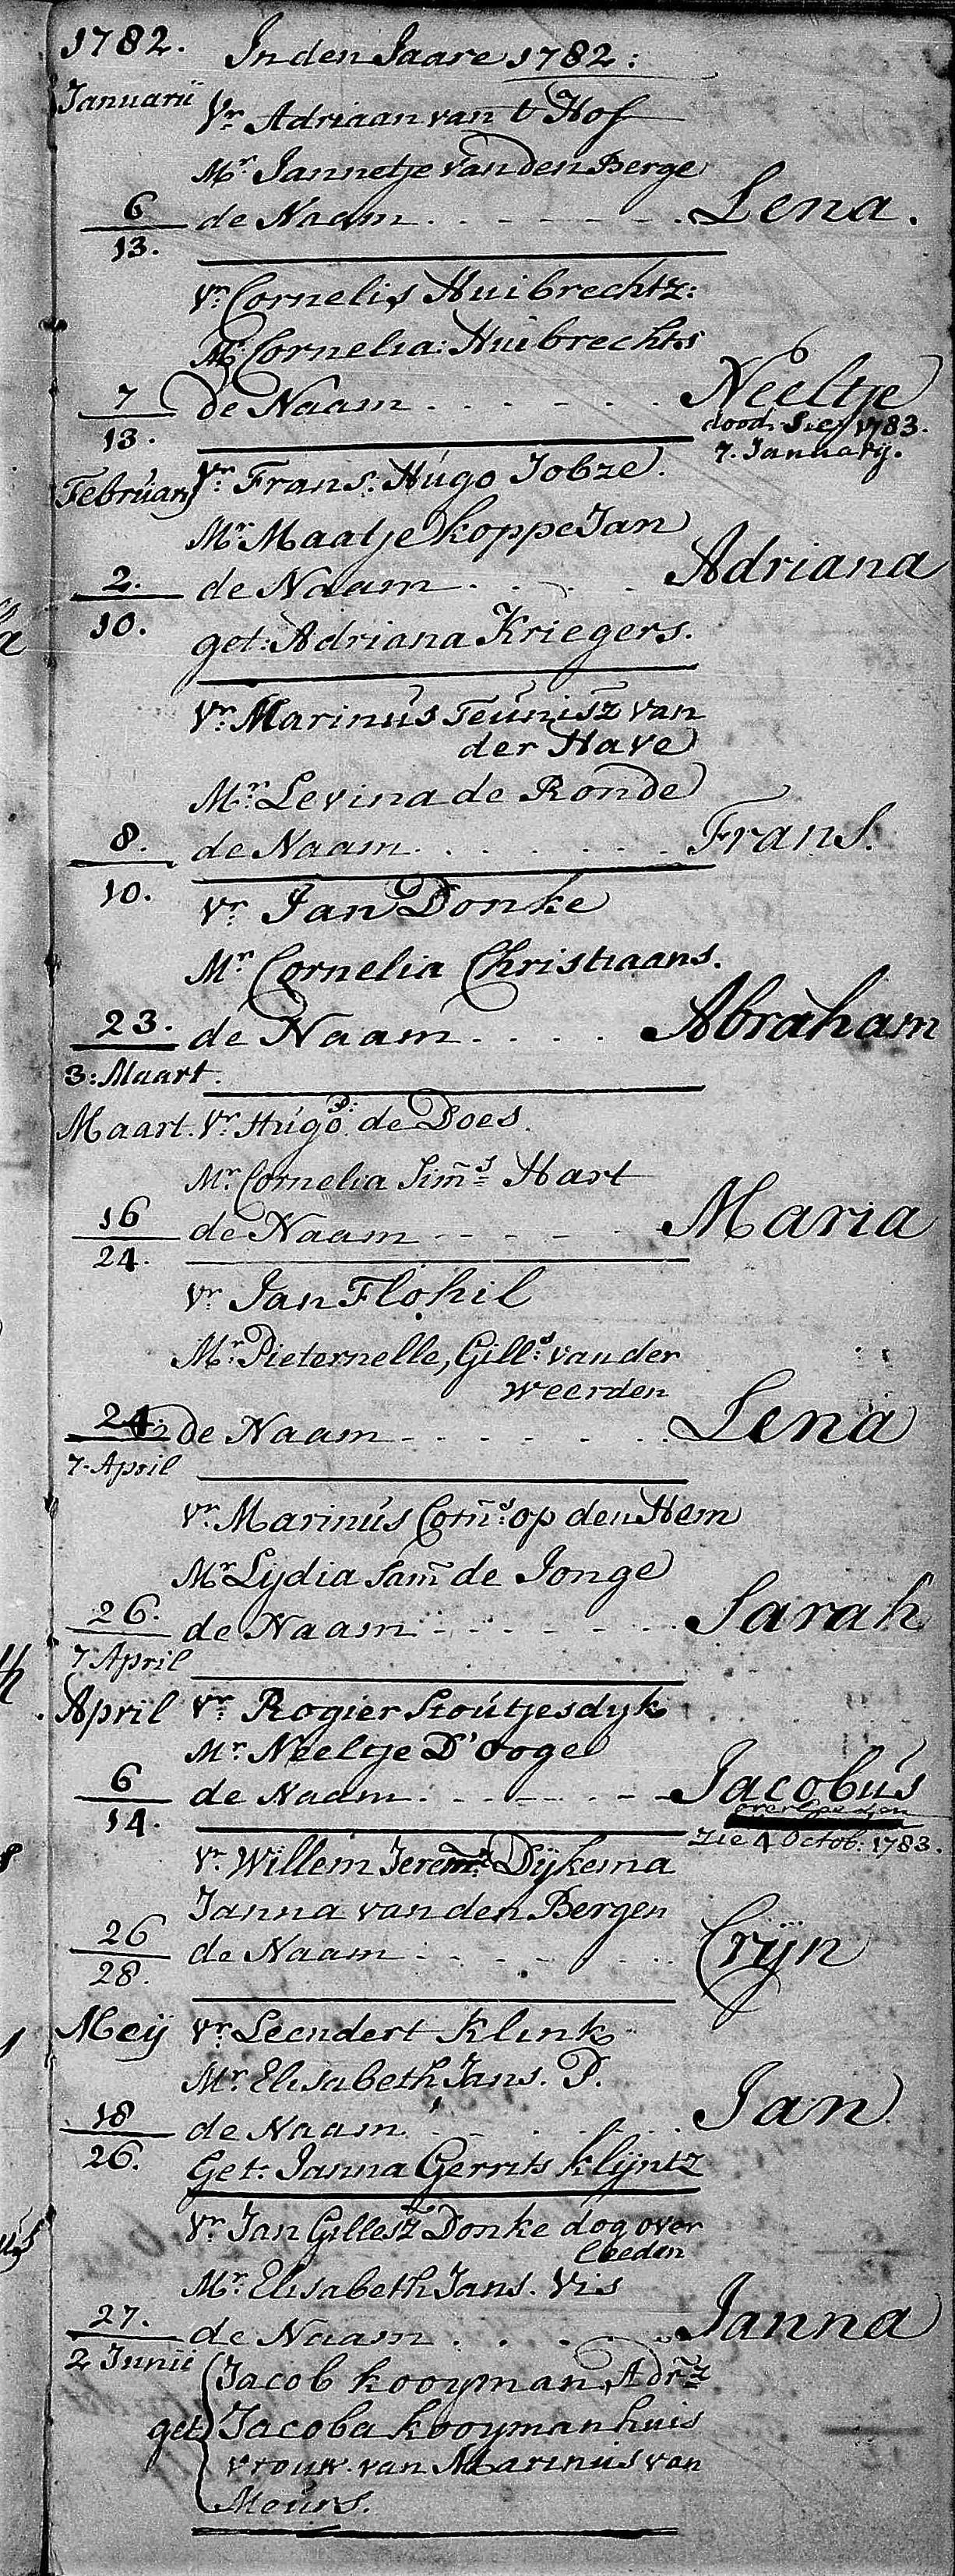 1782. In den Jaare 1782:
Januarii Vr. Adriaan van t Hof
Mr. Jannetje van den Berge
6 de Naam . . . . . . . Lena.
13.
Vr. Cornelis Huibrechtz:
Mr. Cornelia: Huibrechts
7 de Naam . . . . . . Neeltje
13. dood. Siet 1783.
7. January.
Februarij Vr. Frans. Hugo Jobze.
Mr. Maatje koppe Jan
2. de Naam . . . . Adriana
10.
get: Adriana Kriegers.
Vr. Marinus Teunisz van
der Have
Mr. Levina de Ronde
8. de Naam . . . . . . . Frans.
10.
Vr. Jan Donke
Mr. Cornelia Christiaans.
23. de Naam . . . . Abraham
3: Maart.
Maart. Vr. Hugo D: de Does.
Mr. Cornelia Sims Hart
16 de Naam - - - - Maria
24.
Vr. Jan Flohil
Mr. Pieternelle, Gills: van der
weerden
24. de Naam - - - - - . Lena
7. April
Vr. Marinus Corns: op den Hem
Mr. Lydia Sam de Jonge
26. de Naam - - - - - - Sarah
7 April
April Vr. Rogier Stoutjesdyk
Mr. Neeltje D'ooge
6 de Naam . . - - - . - - Jacobus
14. overleeden
zie 4 Octob. 1783.
Vr. Willem Jerem: Dijkema
Janna van den Bergen
26 de Naam - - - - . . Crijn
28.
Meij Vr. Leendert Klink
Mr. Elisabeth Jans. P.
18 de Naam . - . . . . Jan.
26.
Get: Janna Gerrits Klijntz
Vr. Jan Gillesz Donke dog over
leeden
Mr. Elisabeth Jans. Vis
27. de Naam . . . . . Janna
2 Junii
Jacob kooyman, Adrz
get Jacoba kooyman huis
vrouw van Marinus van
Meurs.